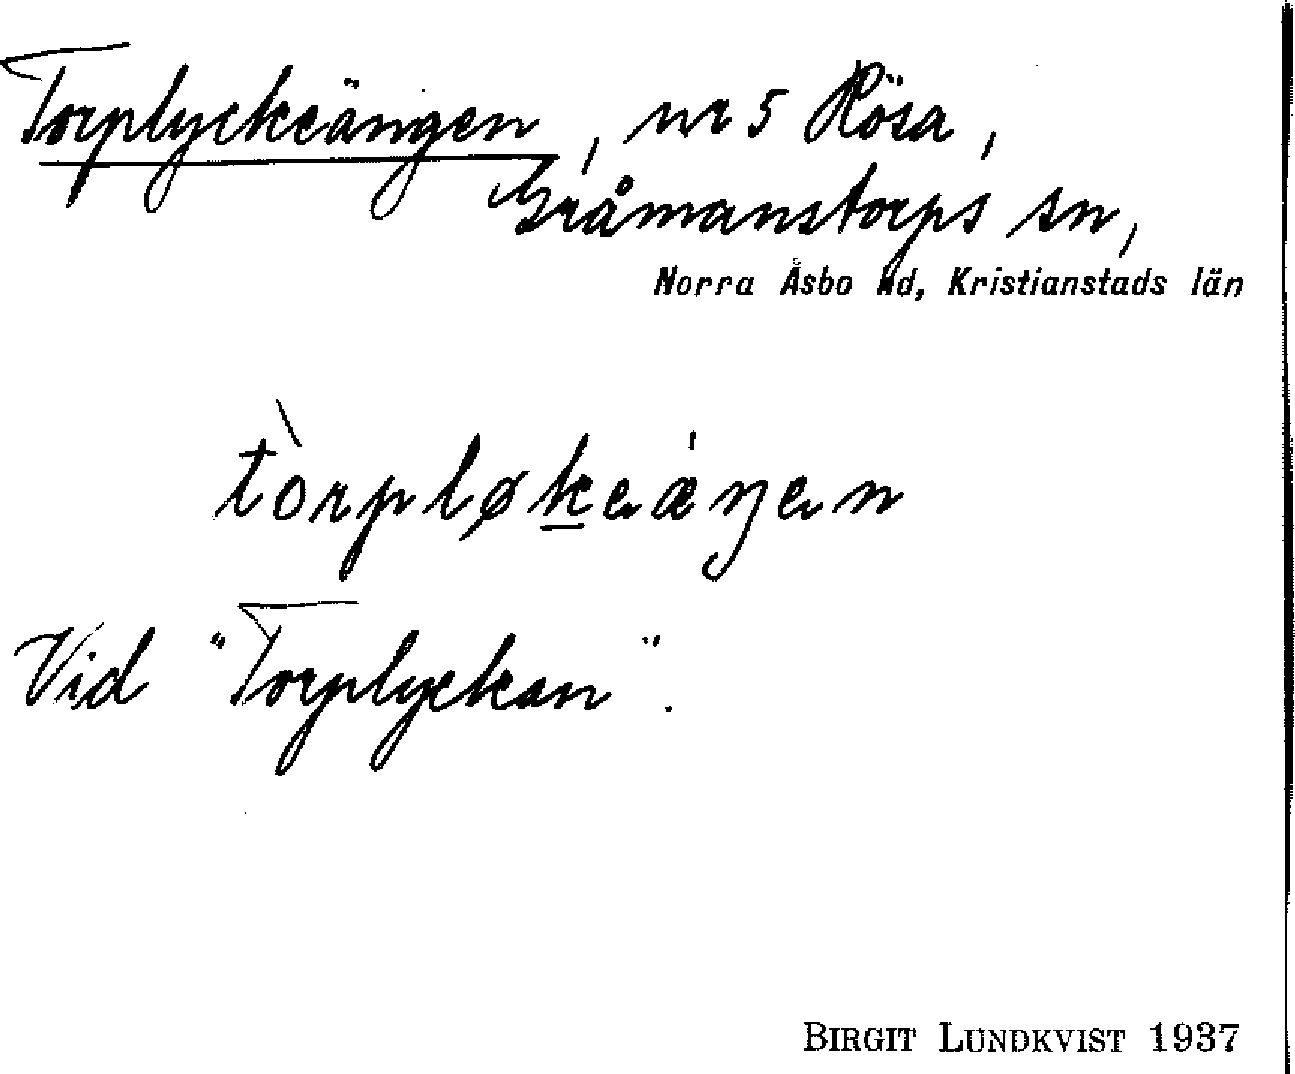 Torplyckeängen, nr 5 Rösa,
Gråmanstorps sn,
Norra Åsbo hd, Kristianstads län
tòrpløkeæ̍ŋen
Vid "Torplyckan".
BIRGIT LUNDKVIST 1937